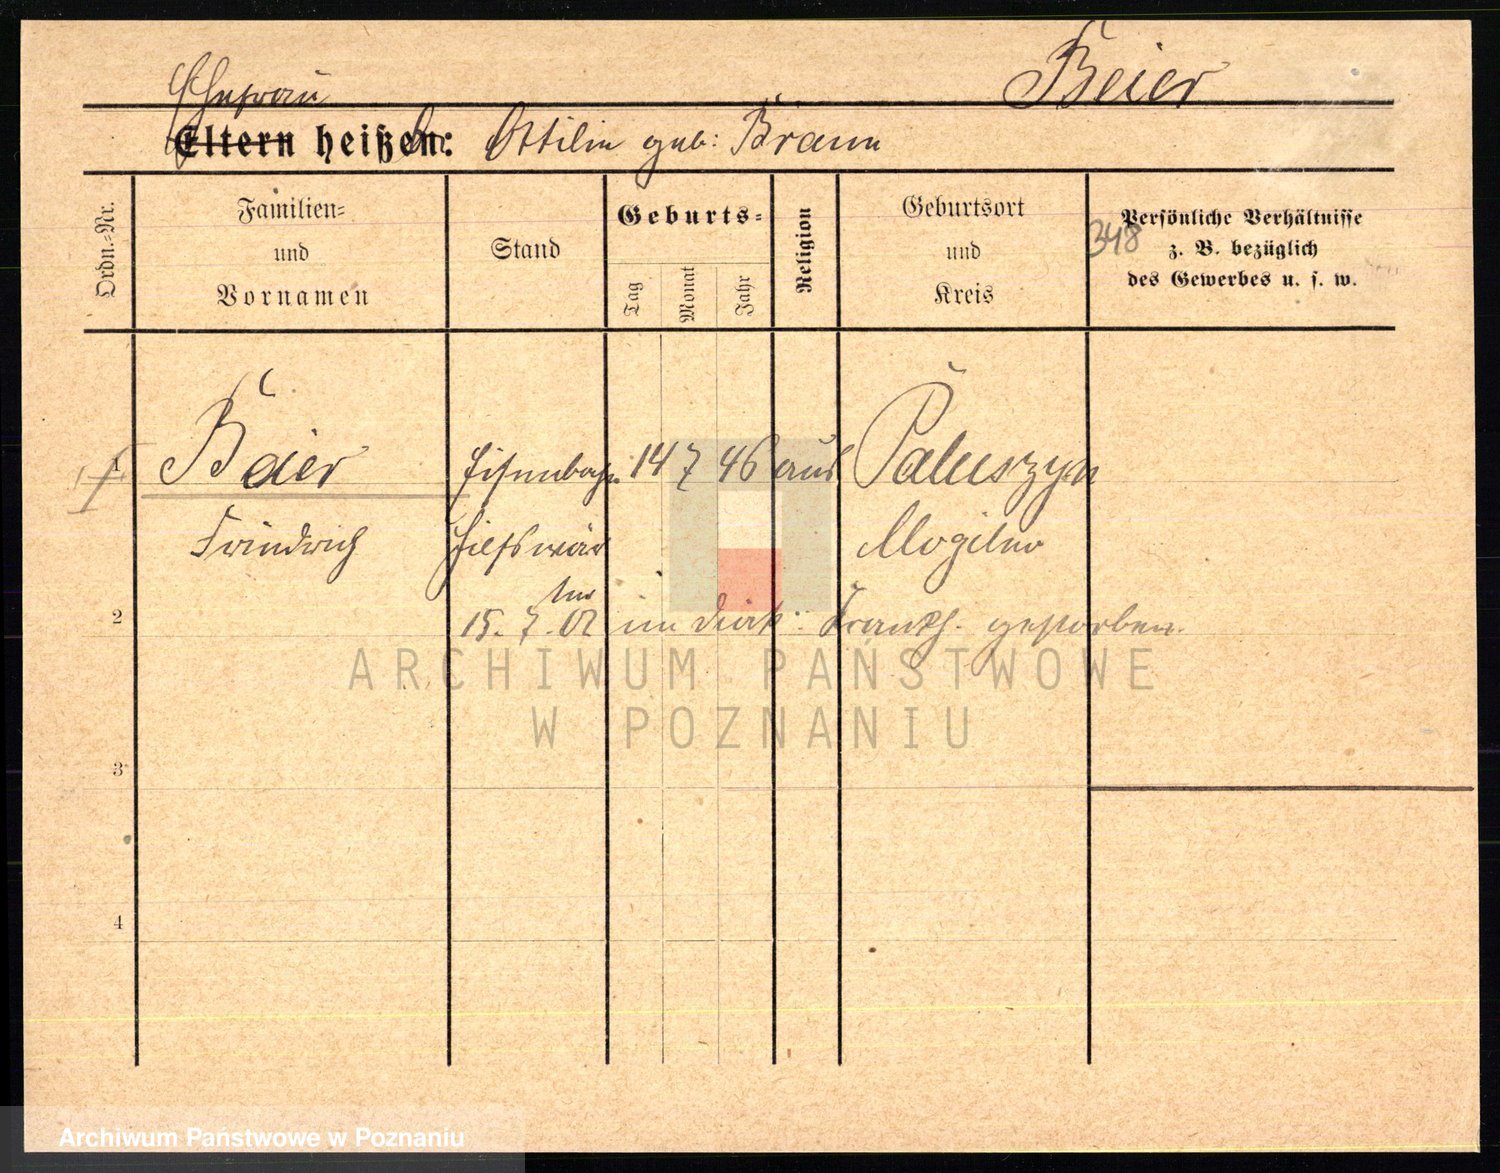 Beier
Ehefrau
Eltern heißen: Ottilie geb: Braun
Ordn.=Nr.
Familien=
und
Vornamen
Stand
Geburts=
Tag
Monat
Jahr
Religion
Geburtsort
und
Kreis
348
Persönliche Verhältnisse
z. B. bezüglich
des Gewerbes u. s. w.
1 Beier Eisenbahn 14 7 46 aus Paluszyn
Friedrich Hilfswär Mogilno
ter
2 15. 7. 02 im Diak. Krankh. gestorben.
ARCHIWUM PAŃSTWOWE
W POZNANIU
3
4
Archiwum Państwowe w Poznaniu